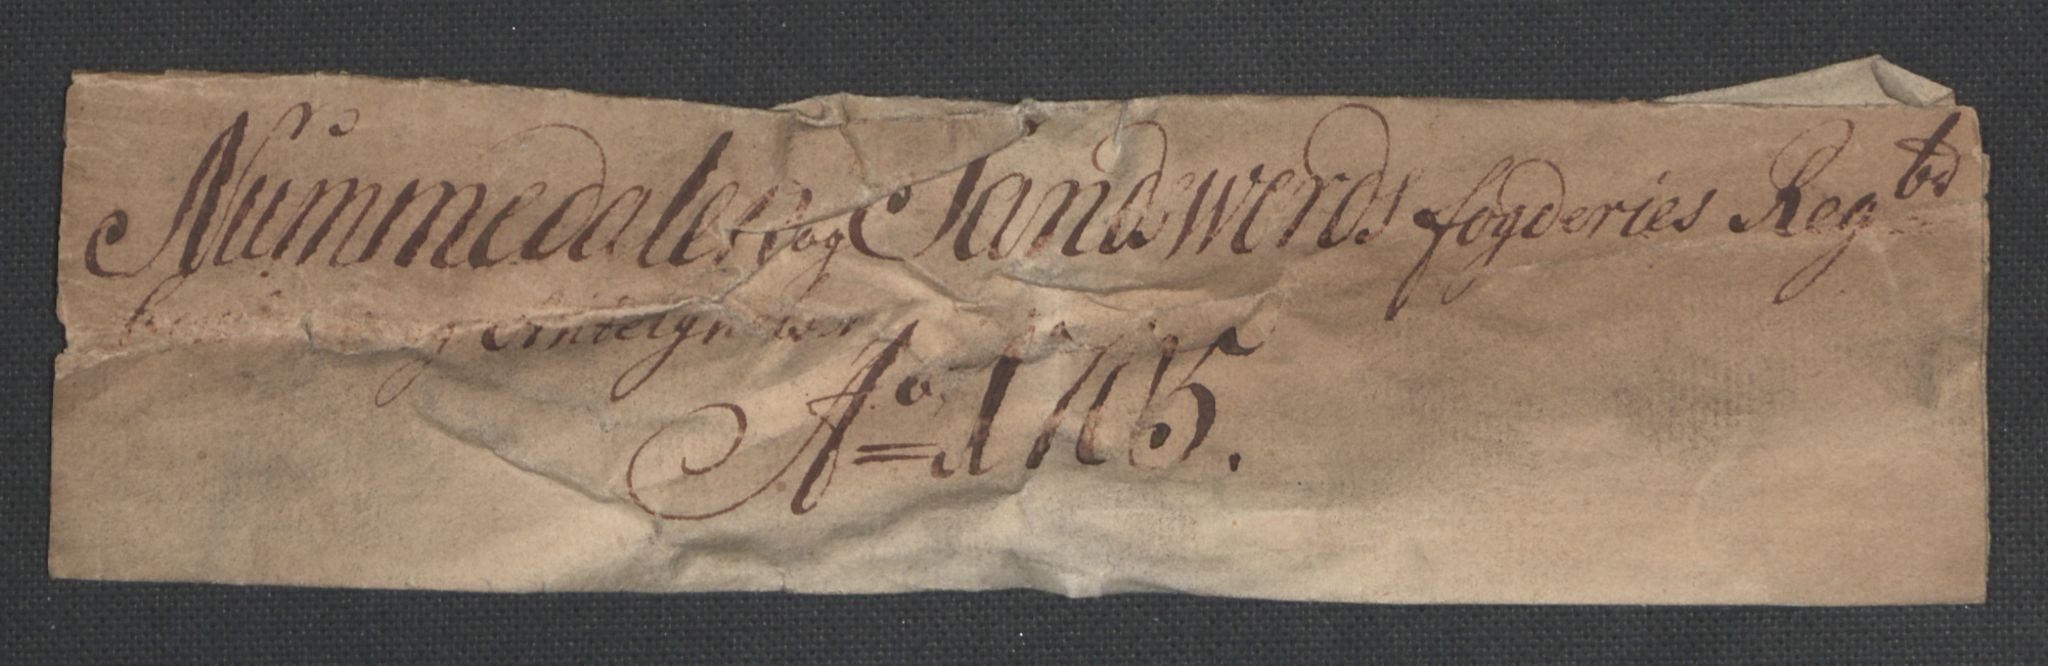 Nummedalen og Sandswerds fogderies Reg
og Antelgnelser
Ao 1715.